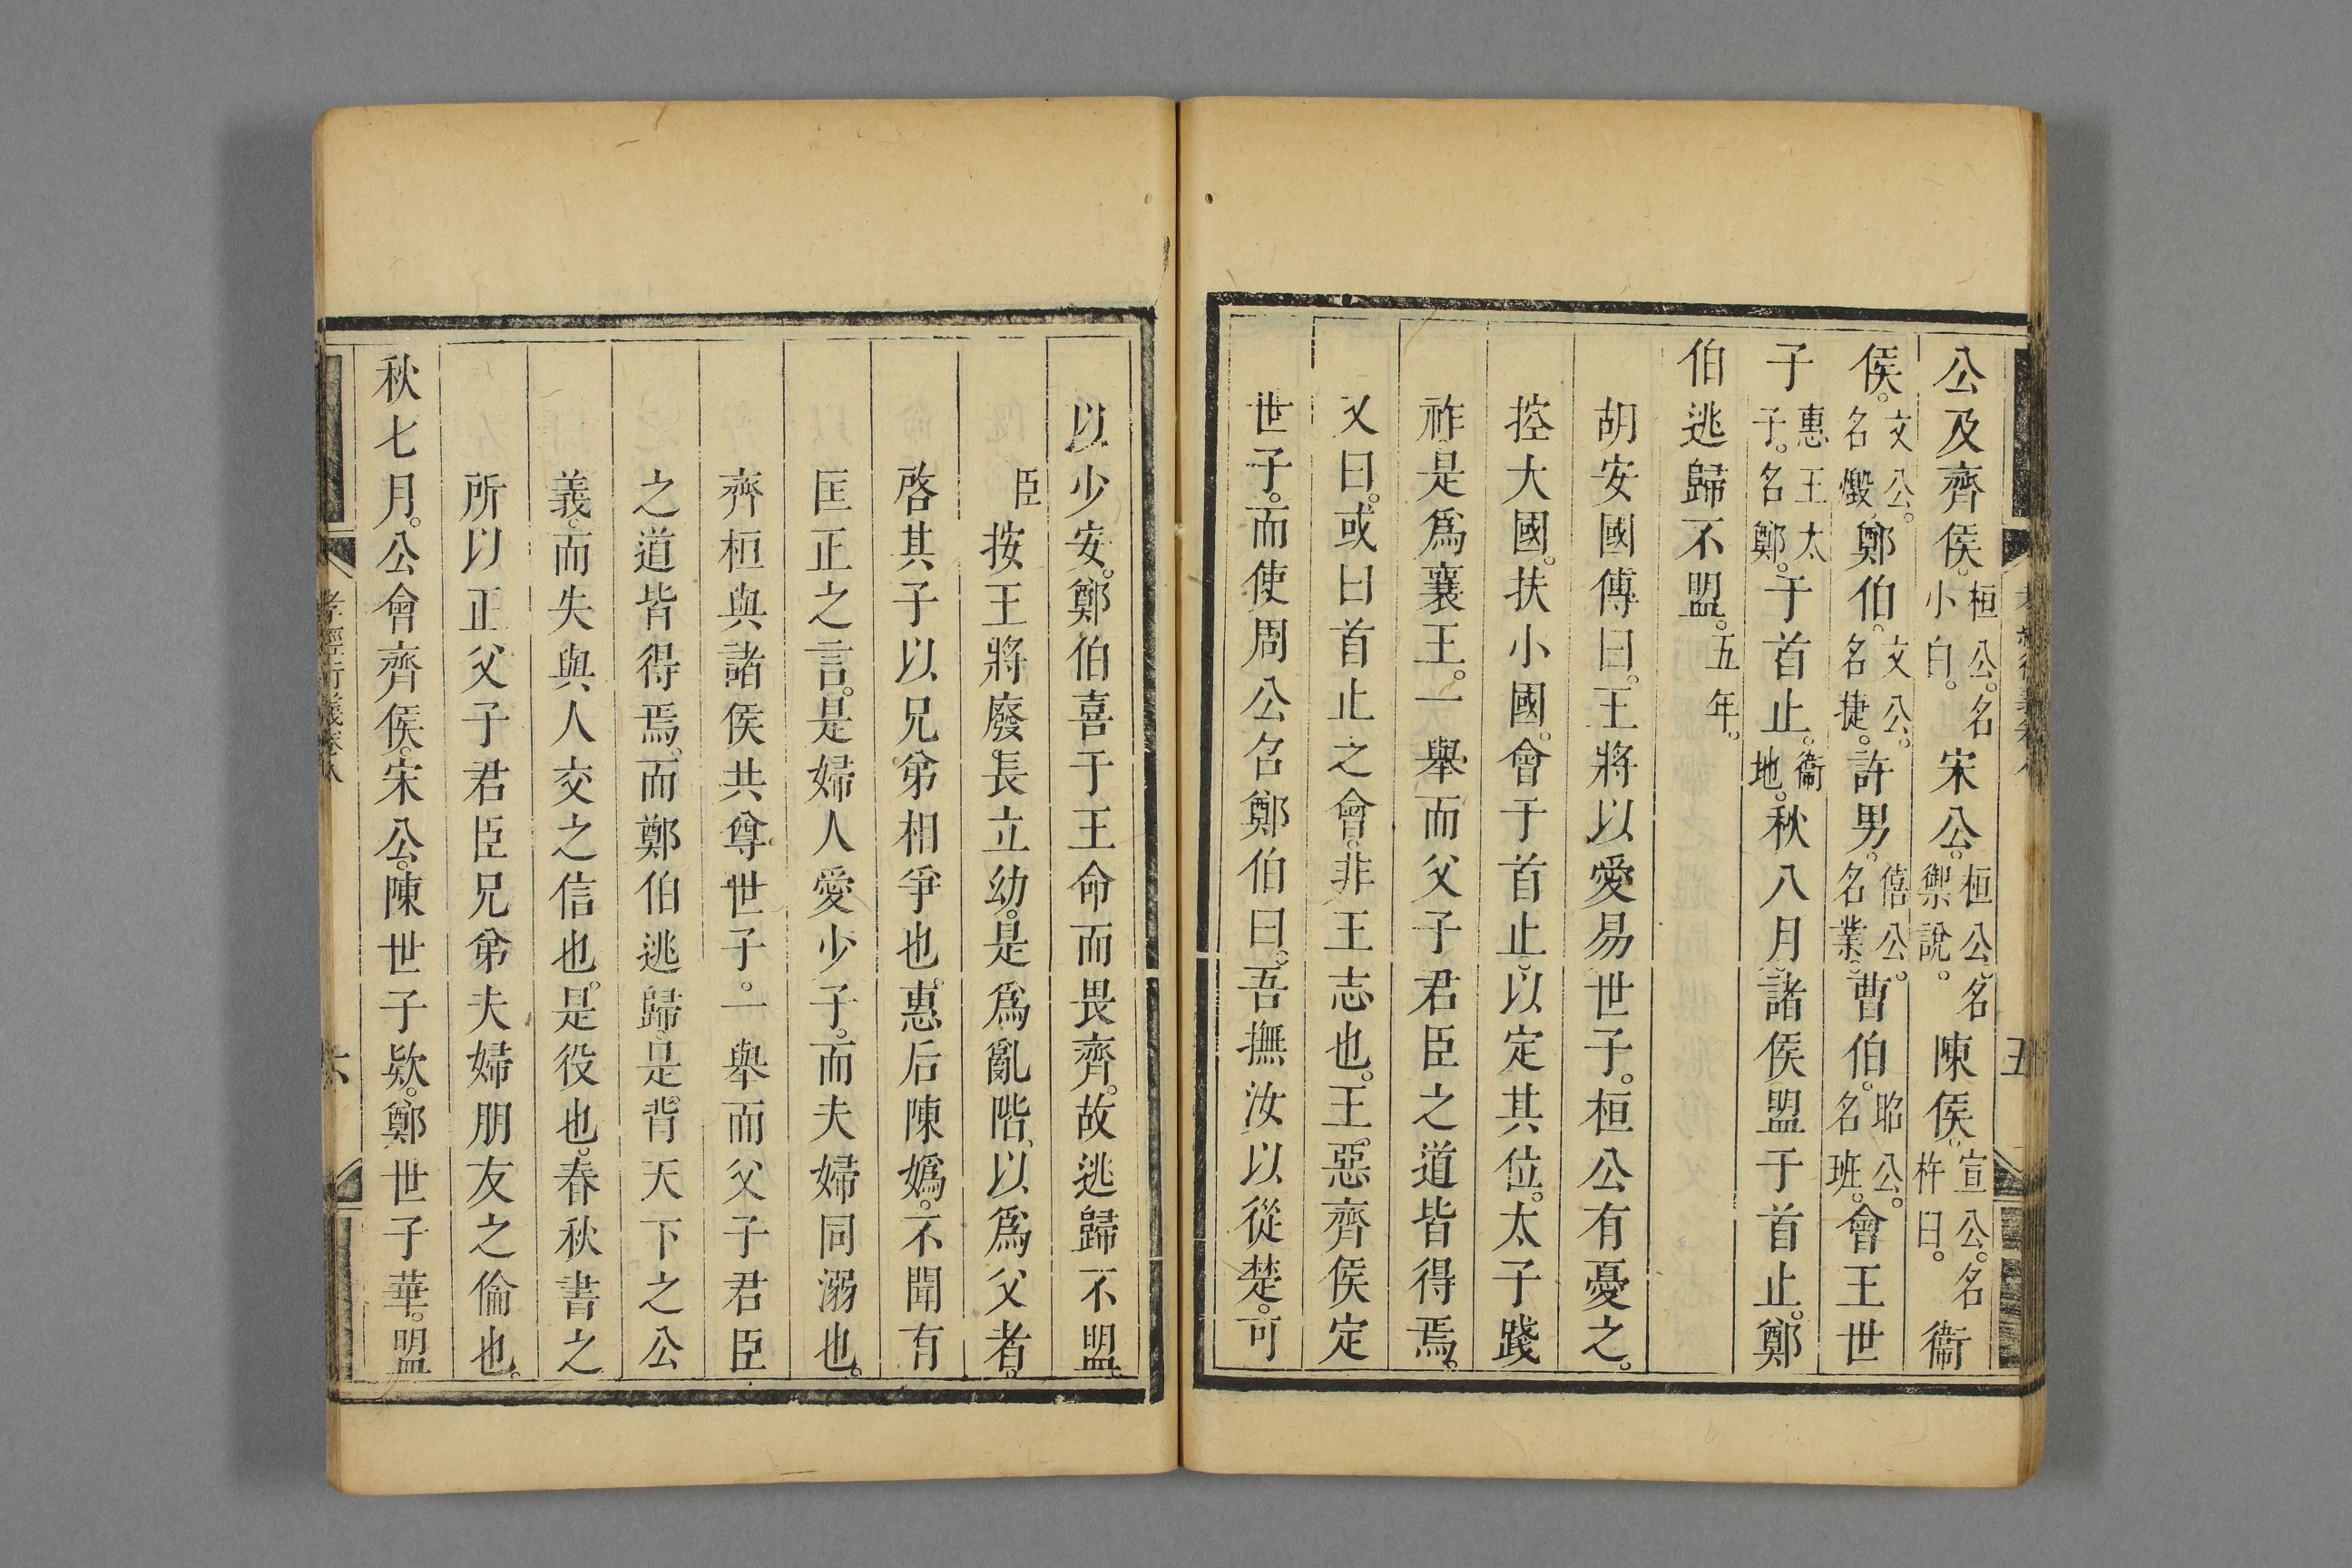 公及齊侯。桓公。名小白。宋公。桓公。名禦說。陳侯。宣公。名杵臼。衞
侯。文公。名燬。鄭伯。文公。名捷。許男。僖公。名業。曹伯。昭公。名班。會王世
子惠王太子。名鄭。于首止。衞地。秋八月。諸侯盟于首止。鄭
伯逃歸不盟。五年。
胡安國傳曰。王將以愛易世子。桓公有憂之。
控大國。扶小國。會于首止。以定其位。太子踐
祚是爲襄王。一舉而父子君臣之道皆得焉。
又曰。或曰首止之會。非王志也。王惡齊侯定
世子。而使周公召鄭伯曰。吾撫汝以從楚。可
以少安。鄭伯喜于王命而畏齊。故逃歸不盟。
臣按王將廢長立幼。是爲亂階、以爲父者。
啓其子以兄弟相爭也。惠后陳嬀。不聞有
匡正之言。是婦人愛少子。而夫婦同溺也。
齊桓與諸侯共尊世子。一舉而父子君臣
之道皆得焉。而鄭伯逃歸。是背天下之公
義。而失與人交之信也。是役也。春秋書之
所以正父子君臣兄弟夫婦朋友之倫也。
秋七月。公會齊侯。宋公。陳世子款。鄭世子華。盟
孝經衍義卷八
六
五